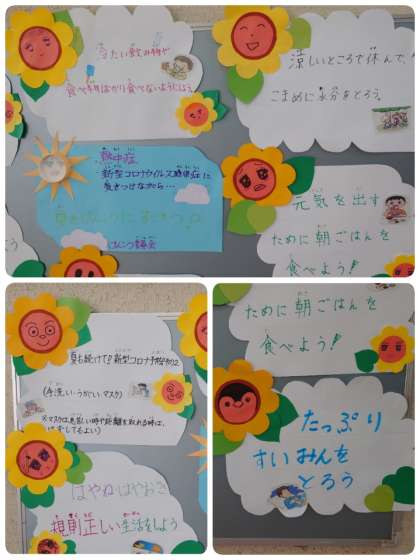 冷たい飲み物や
食べ物ばかり食べないようにしよう。
涼しいところで休んで、
こまめに水分をとろう。
熱中症、
新型コロナウイルス感染症に
気をつけながら…
夏を元気にすごそう
ほけんつ委員会
元気を出す
ために朝ごはんを
食べよう!
夏も続けて!!新型コロナ予防対策
(手洗い・うがい・マスク)
はやね はやおき
規則正しい生活をしよう
ために朝ごはんを
食べよう!
たっぷり
すいみんを
とろう